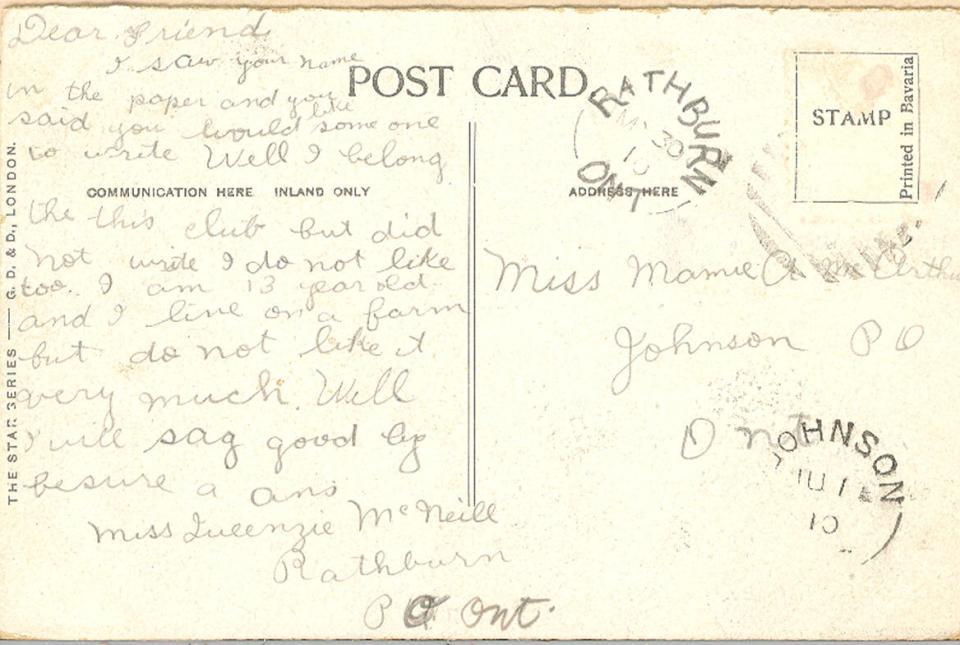 Dear Friend
I saw your name
in the paper and you
said you would like some one
to write Well I belong
the this club but did
not write I do not like
too. I am 13 year old
and I live on a farm
but do not like it
very much. Well
I will say good by
besure a ans
Miss Queenzie McNeill
Rathburn
PO Ont.
THE STAR SERIES — G. D. & D., LONDON.
POST CARD
COMMUNICATION HERE INLAND ONLY
ADDRESS HERE
STAMP
Printed in Bavaria
RATHBURN
30
10
ONT
Miss Mamie A McArthu
Johnson PO
Ont
JOHNSON
JU 1
10